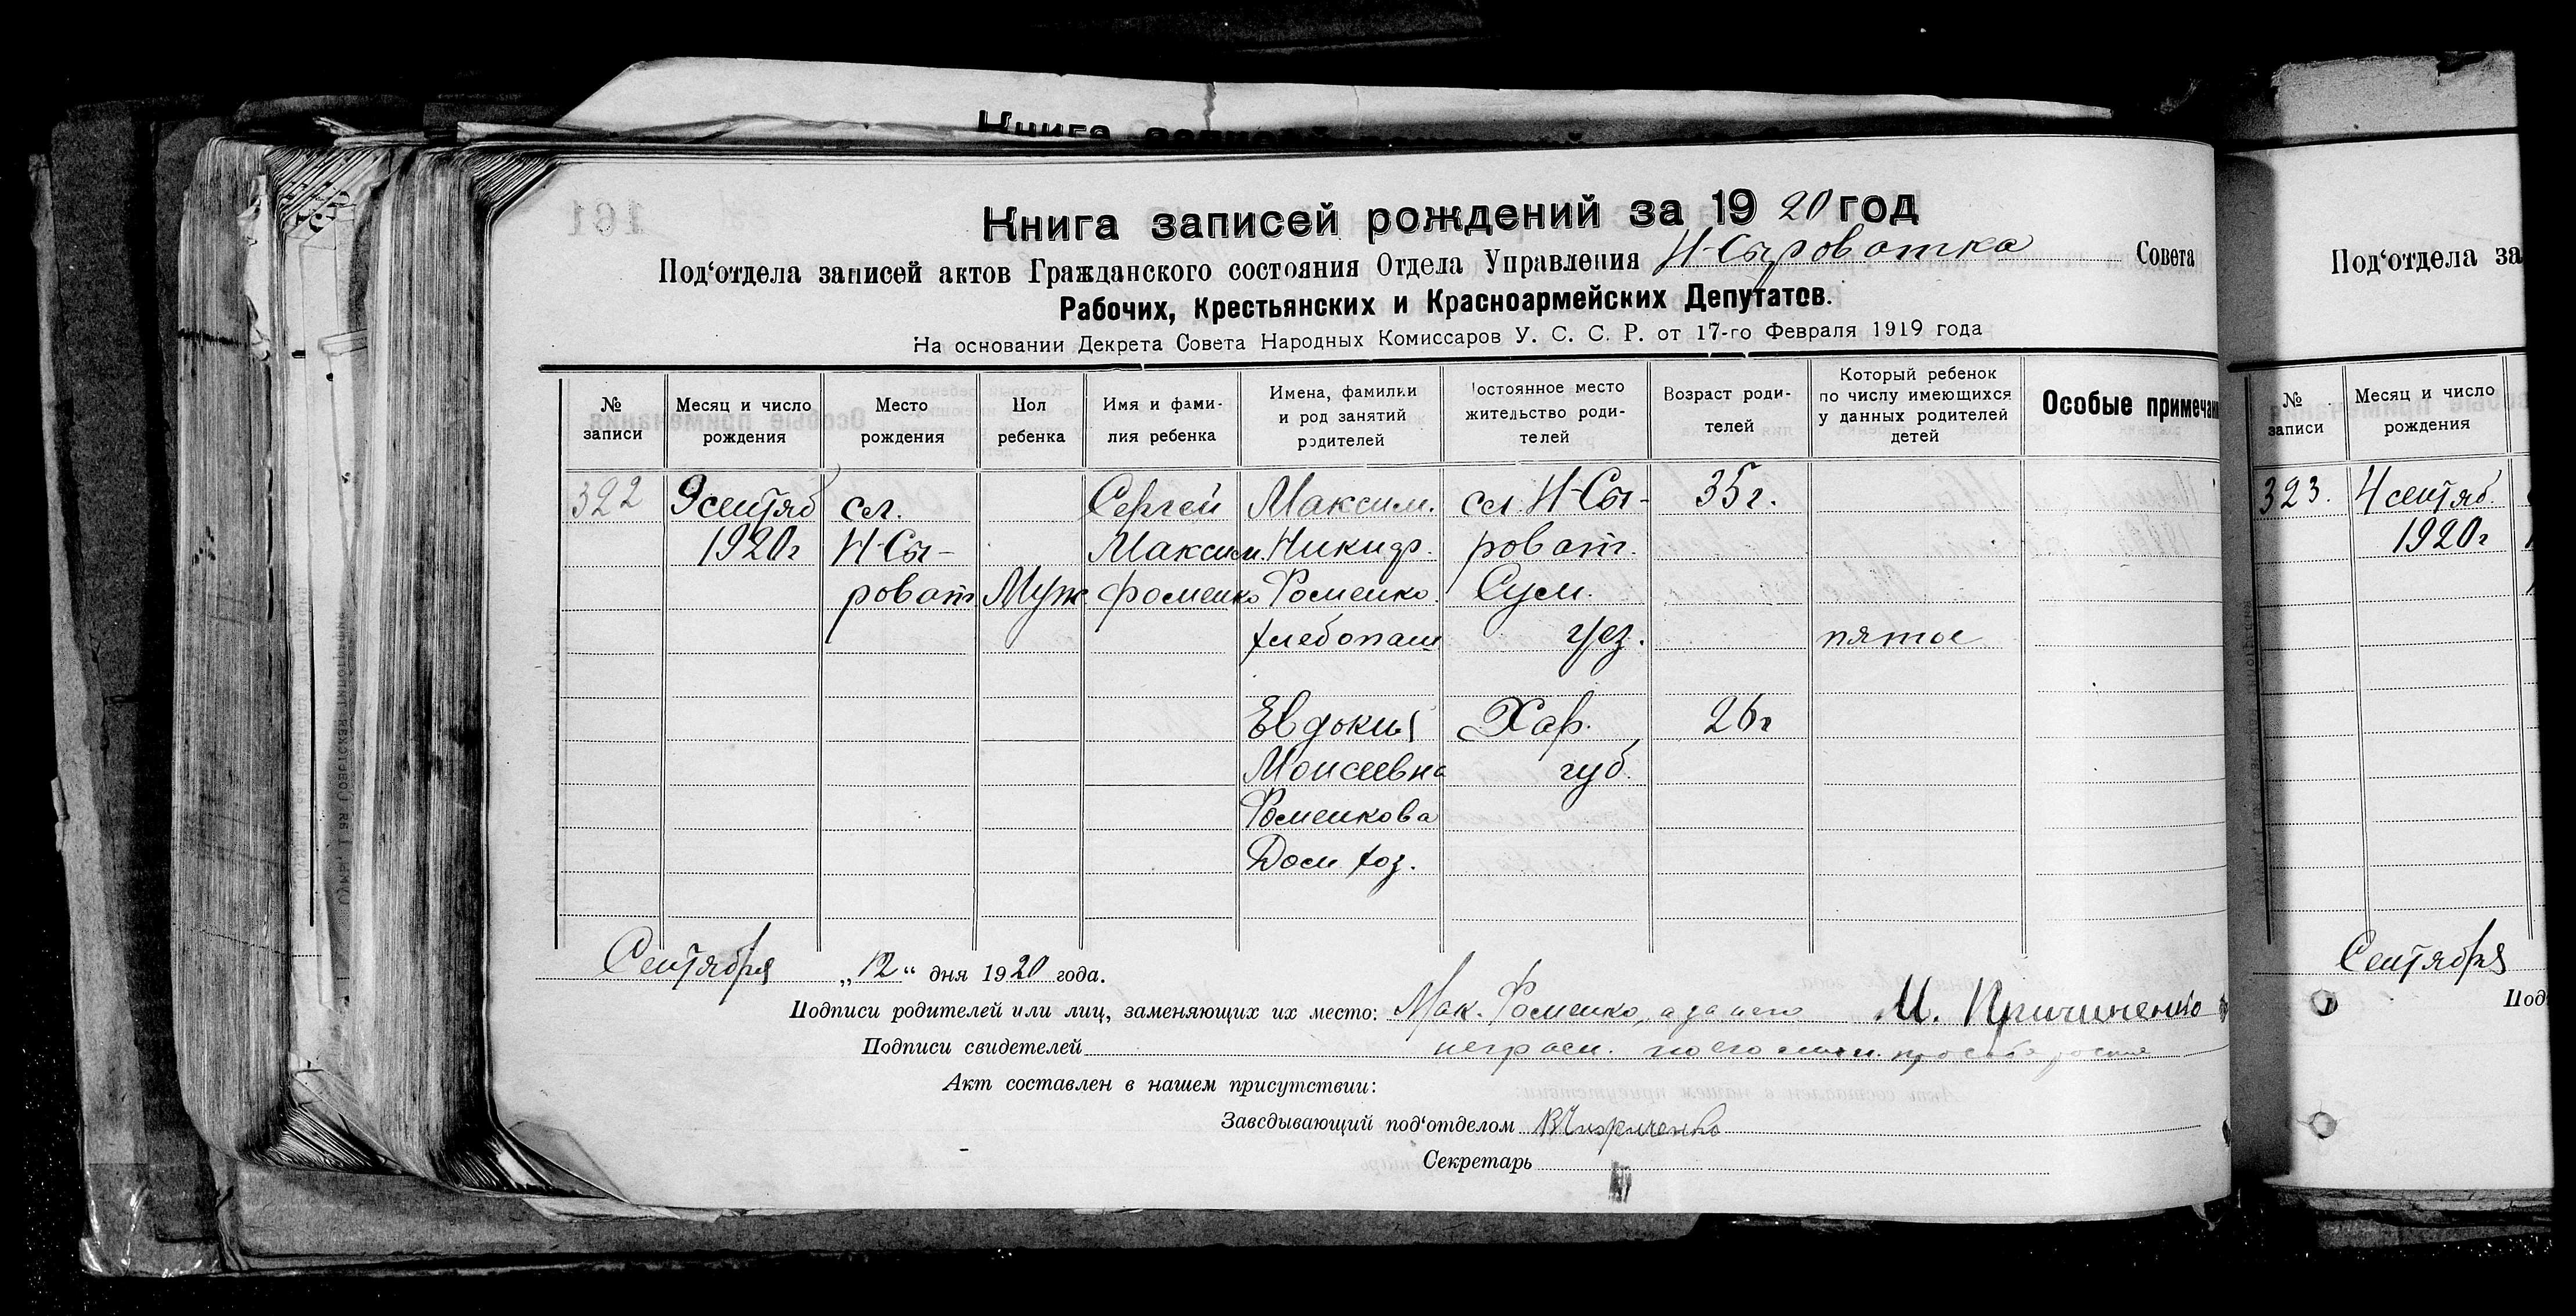 Книга записей рождений за 1920 год
Под‘отдела записей актов Гражданского состояния Отдела Управления Н-Сыроватка Совета
Рабочих, Крестьянских и Красноармейских Депутатов.
На основании Декрета Совета Народных Комиссаров У. С. С. Р. от 17-го Февраля 1919 года
№ записи
Месяц и число рождения
Место рождения
Пол ребенка
Имя и фами-
лия ребенка
Имена, фамилии
и род занятий
родителей
Постоянное место
жительство роди-
телей
Возраст роди-
телей
Который ребенок
по числу имеющихся
у данных родителей
детей
Особые примечан
322
9 сентяб
1920 г
сел.
Н-Сы-
роват
Муж
Сергей
Максим.
Фоменко
Максим.
Никиф.
Фоменко.
хлебопаш
Евдокия
Моисеевна
Фоменкова
Дом. хоз.
сел. Н-Сы-
роват.
Сум.
уез.
Хар.
губ.
35 г.
26 г
пятое
Сентября „12“ дня 1920 года.
Подписи родителей или лиц, заменяющих их место: Мак. Фоменко, а за него М. Причиненко
Подписи свидетелей неграм. по его личн. просьбе
Акт составлен в нашем присутствии:
Заведывающий под‘отделом
Секретарь
Под‘отдела за
№ записи
Месяц и число
рождения
323.
4 сентяб.
1920 г
Сентября
Под
161